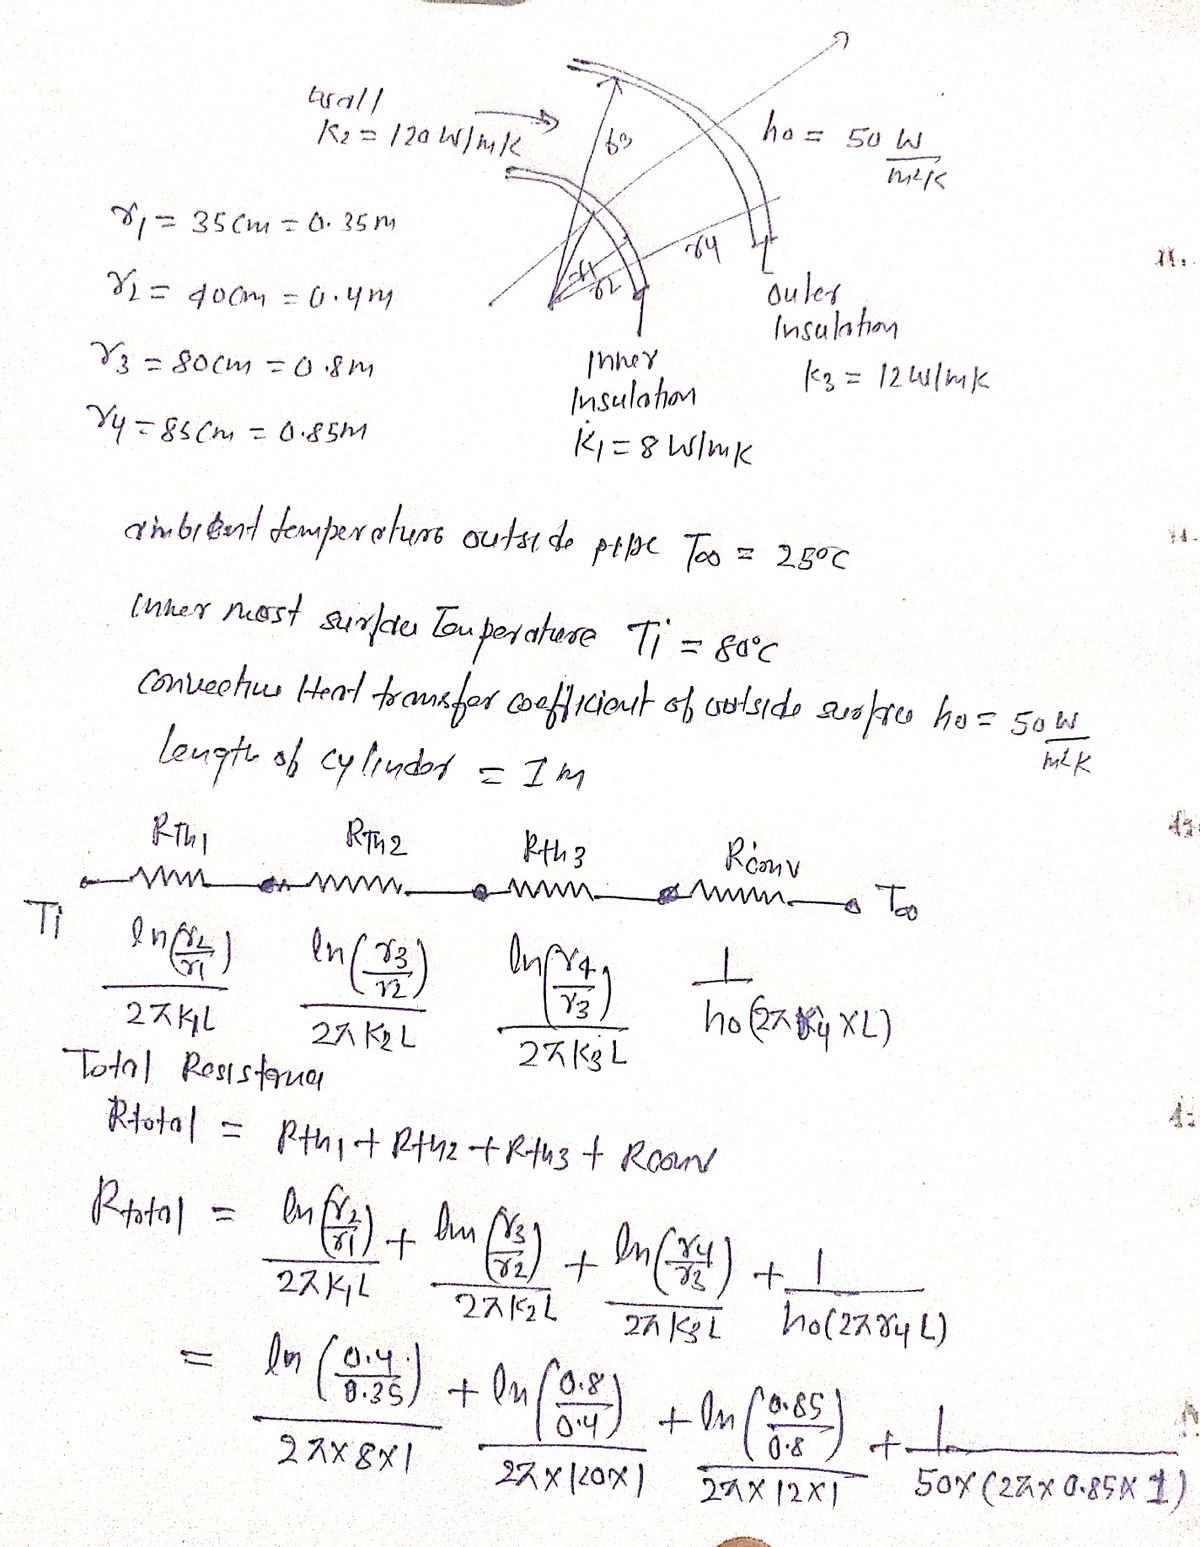 wall
K2 = 120 W/mK
r3
ho = 50 W/m²K
r1 = 35cm = 0.35m
r2 = 40cm = 0.4m
r3 = 80cm = 0.8m
r4 = 85cm = 0.85m
r1
r2
r4
Inner
Insulation
K1 = 8 W/mK
outer
Insulation
K3 = 12 W/mK
ambient temperature outside pipe T∞ = 25°C
Inner most surface Temperature Ti = 80°C
Convective Heat transfer coefficient of outside surface ho = 50 W/m²K
Length of cylinder = 1m
Rth1 Rth2 Rth3 Rconv
Ti T∞
ln(r2/r1)/2πK1L ln(r3/r2)/2πK2L ln(r4/r3)/2πK3L 1/ho(2πr4×L)
Total Resistance
Rtotal = Rth1 + Rth2 + Rth3 + Rconv
Rtotal = ln(r2/r1)/2πK1L + ln(r3/r2)/2πK2L + ln(r4/r3)/2πK3L + 1/ho(2πr4L)
= ln(0.4/0.35)/2π×8×1 + ln(0.8/0.4)/2π×120×1 + ln(0.85/0.8)/2π×12×1 + 1/50×(2π×0.85×1)